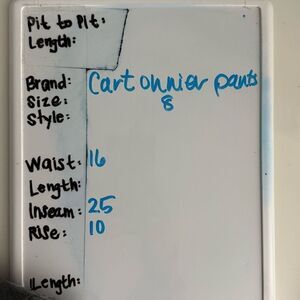 Pit to Pit:
Length:
Brand: Cartonnier pants
Size: 8
Style:
Waist: 16
Length:
Inseam: 25
Rise: 10
Length: